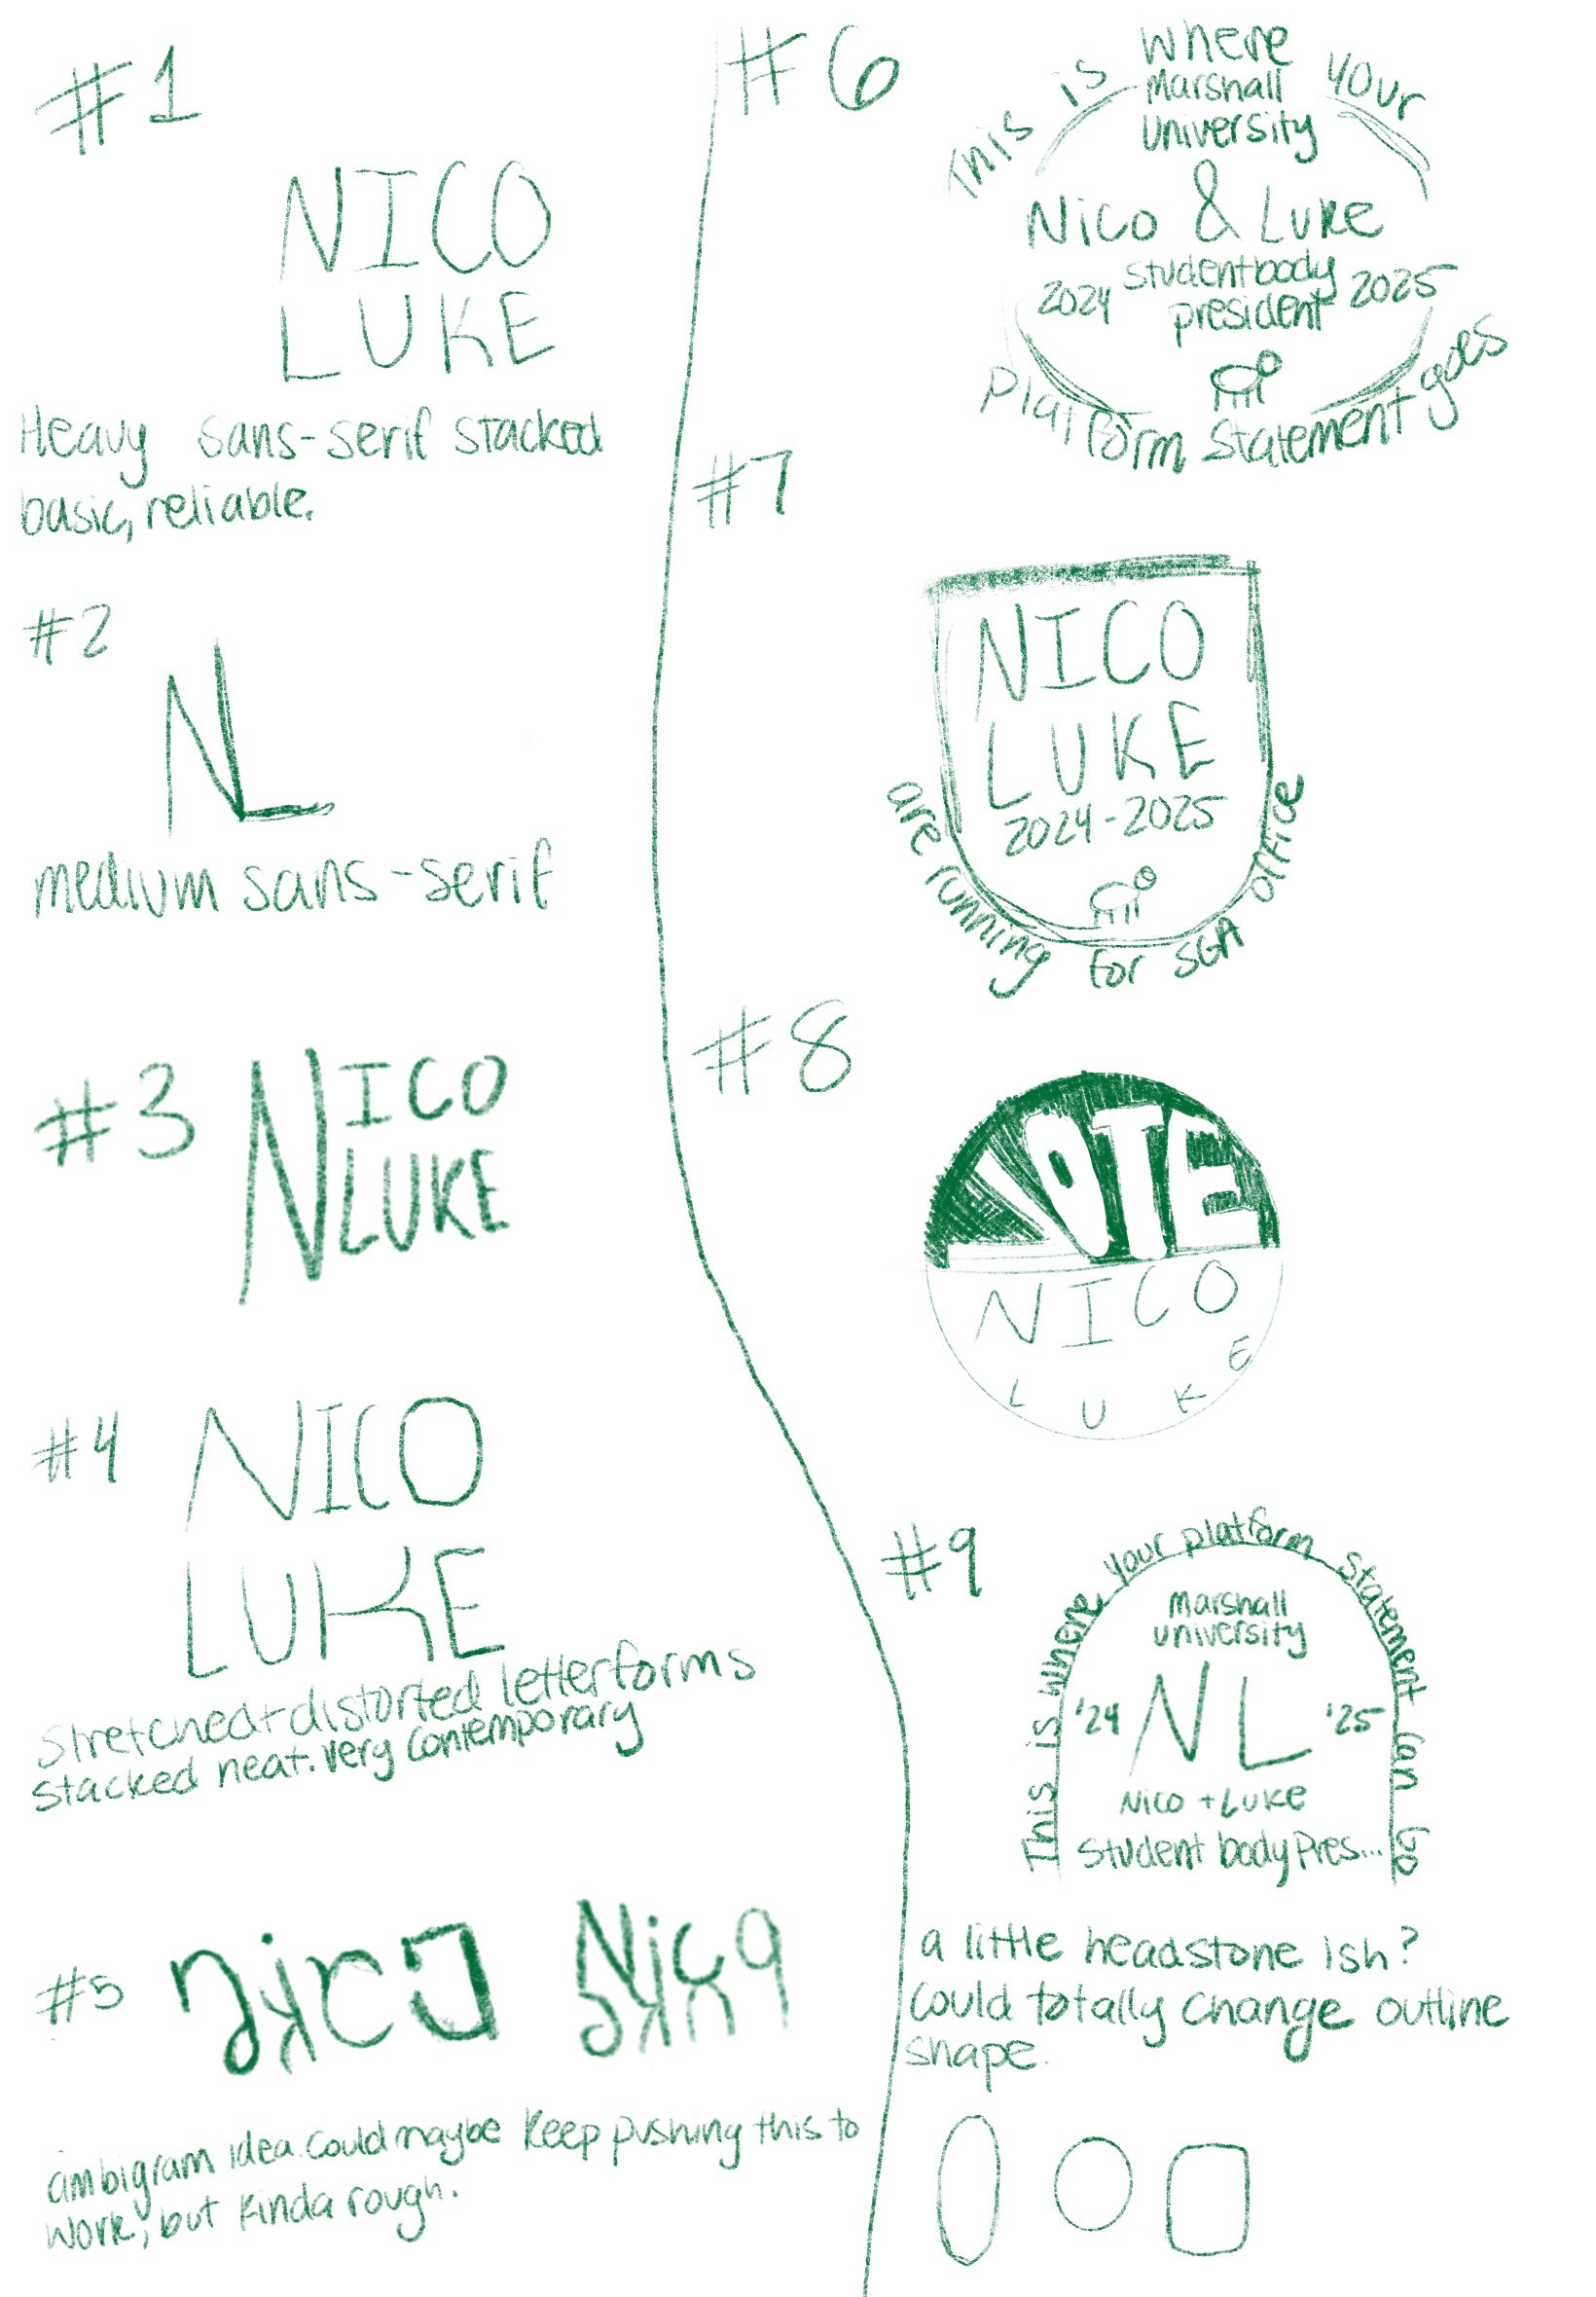 #1
NICO
LUKE
Heavy sans-serif stacked
basic, reliable.
#2
NL
medium sans-serif
#3
NICO
LUKE
#4
NICO
LUKE
stretched+distorted letterforms
stacked neat. very contemporary
#5
Nico
ambigram idea. could maybe keep pushing this to
work, but kinda rough.
#6
This is where your
Marshall
University
Nico & Luke
2024 student body 2025
president
Platform statement goes
#7
NICO
LUKE
2024-2025
are running for SGA office
#8
VOTE
NICO
LUKE
#9
This is where your platform statement can go
Marshall
university
'24 NL '25
Nico + Luke
Student body Pres...
a little headstone ish?
Could totally change outline
shape.